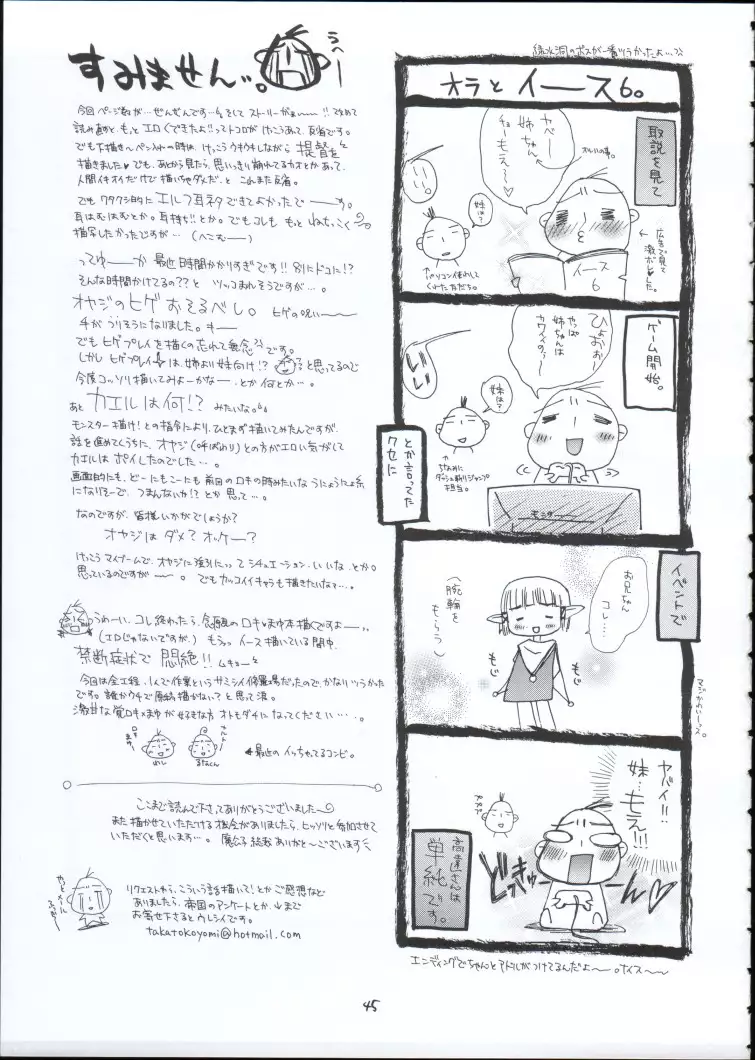 すみません…。
うへー
今回ページ数が…ぜんぜんです…そしてストーリーがぁー!! 改めて
読み直すと、もっとエロくできたよ!!ってトコロがけっこうあって、反省です。
でも下描き〜ペン入れの時は、けっこうウキウキしながら提督を
描きました♥でも、あとから見たら、思いっきり崩れてるカオとかあって、
人間イキオイだけで描いちゃダメだ、と これまた反省。
でもワタクシ的にエルフ耳ネタできてよかったでーーす。
耳はむはむとか。耳持ち!!とか。でもコレももっとねちっこく
描写したかったですが…(へこむー)
ってゆーか最近時間かかりすぎです!! 別にドコに!?
そんな時間かけてるの??とツッコまれそうですが…。
オヤジのヒゲおそるべし。ヒゲの呪いーー
手がつりそうになりました。キー
でもヒゲプレイを描くの忘れて無念です。
しかしヒゲプレイは、姉より妹向け!?と思ってるので
今度コッソリ描いてみよーかなー、とか何とか…。
あと カエルは何!? みたいな。
モンスター描け!との指令により、ひとまず描いてみたんですが、
話を進めてくうちに、オヤジ(呼ばわり)との方がエロい気がして
カエルはポイしたのでした…。
画面的にも、どーにもこーにも前回のロキの時みたいなうにょうにょ系
になりそーで、つまんないか!?とか思って…。
なのですが、皆様いかがでしょうか?
オヤジはダメ?オッケー?
けっこうマイブームで、オヤジに強引にってシチュエーション、いいな、とか。
思っているのですがーー。でもカッコイイキャラも描きたいなぁ〜…。
うわーい、コレ終わったら、念願のロキ×まゆ本描くですよー…
(エロじゃないですが、) もうっ イース描いている間中、
禁断症状で 悶絶!! ムキョーと
今回は全工程、1人で作業というサミシイ修羅場だったので、かなりツラかった
です。誰かウチで原稿描かない?と思って涙。
激甘な覚ロキ×まゆが好きな方オトモダチになってください…。
←最近のイッちゃてるコンビ。
ここまで読んで下さってありがとうございました〜
また描かせていただける機会がありましたら、ヒッソリと参加させて
いただくと思います…。
リクエストやら、こういう話描いて!とかご感想など
ありましたら、帝国のアンケートとか、↓まで
お寄せ下さるとウレシイです。
takatokoyomi@hotmail.com
緑水洞のボスが一番ツラかったよ…
オラとイース6。
取説を見て
ヤベー
姉ちゃん
チョーもえ〜
オレの事。
いい。
妹は?
イース
6
広告で見て
激ボレした。
↑パソコン係りして
くれた友だち。
ゲーム開始。
ひょおぉー
やっぱ
姉ちゃんは
カワイイのぅ〜
いい
妹は?
↑ちなみに
ダッシュ斬りジャンプ
担当。
モニター
とか言ってた
クセに
イベントで
お兄ちゃん
コレ……
(腕輪を
もらう)
もじ
もじ
マジかわいーッス。
ヤバイ!!
妹…もえ!!!
高遠さんは
単純です。
エンディングでちゃんとアドルがつけてるんだよ〜。ナイス〜
45